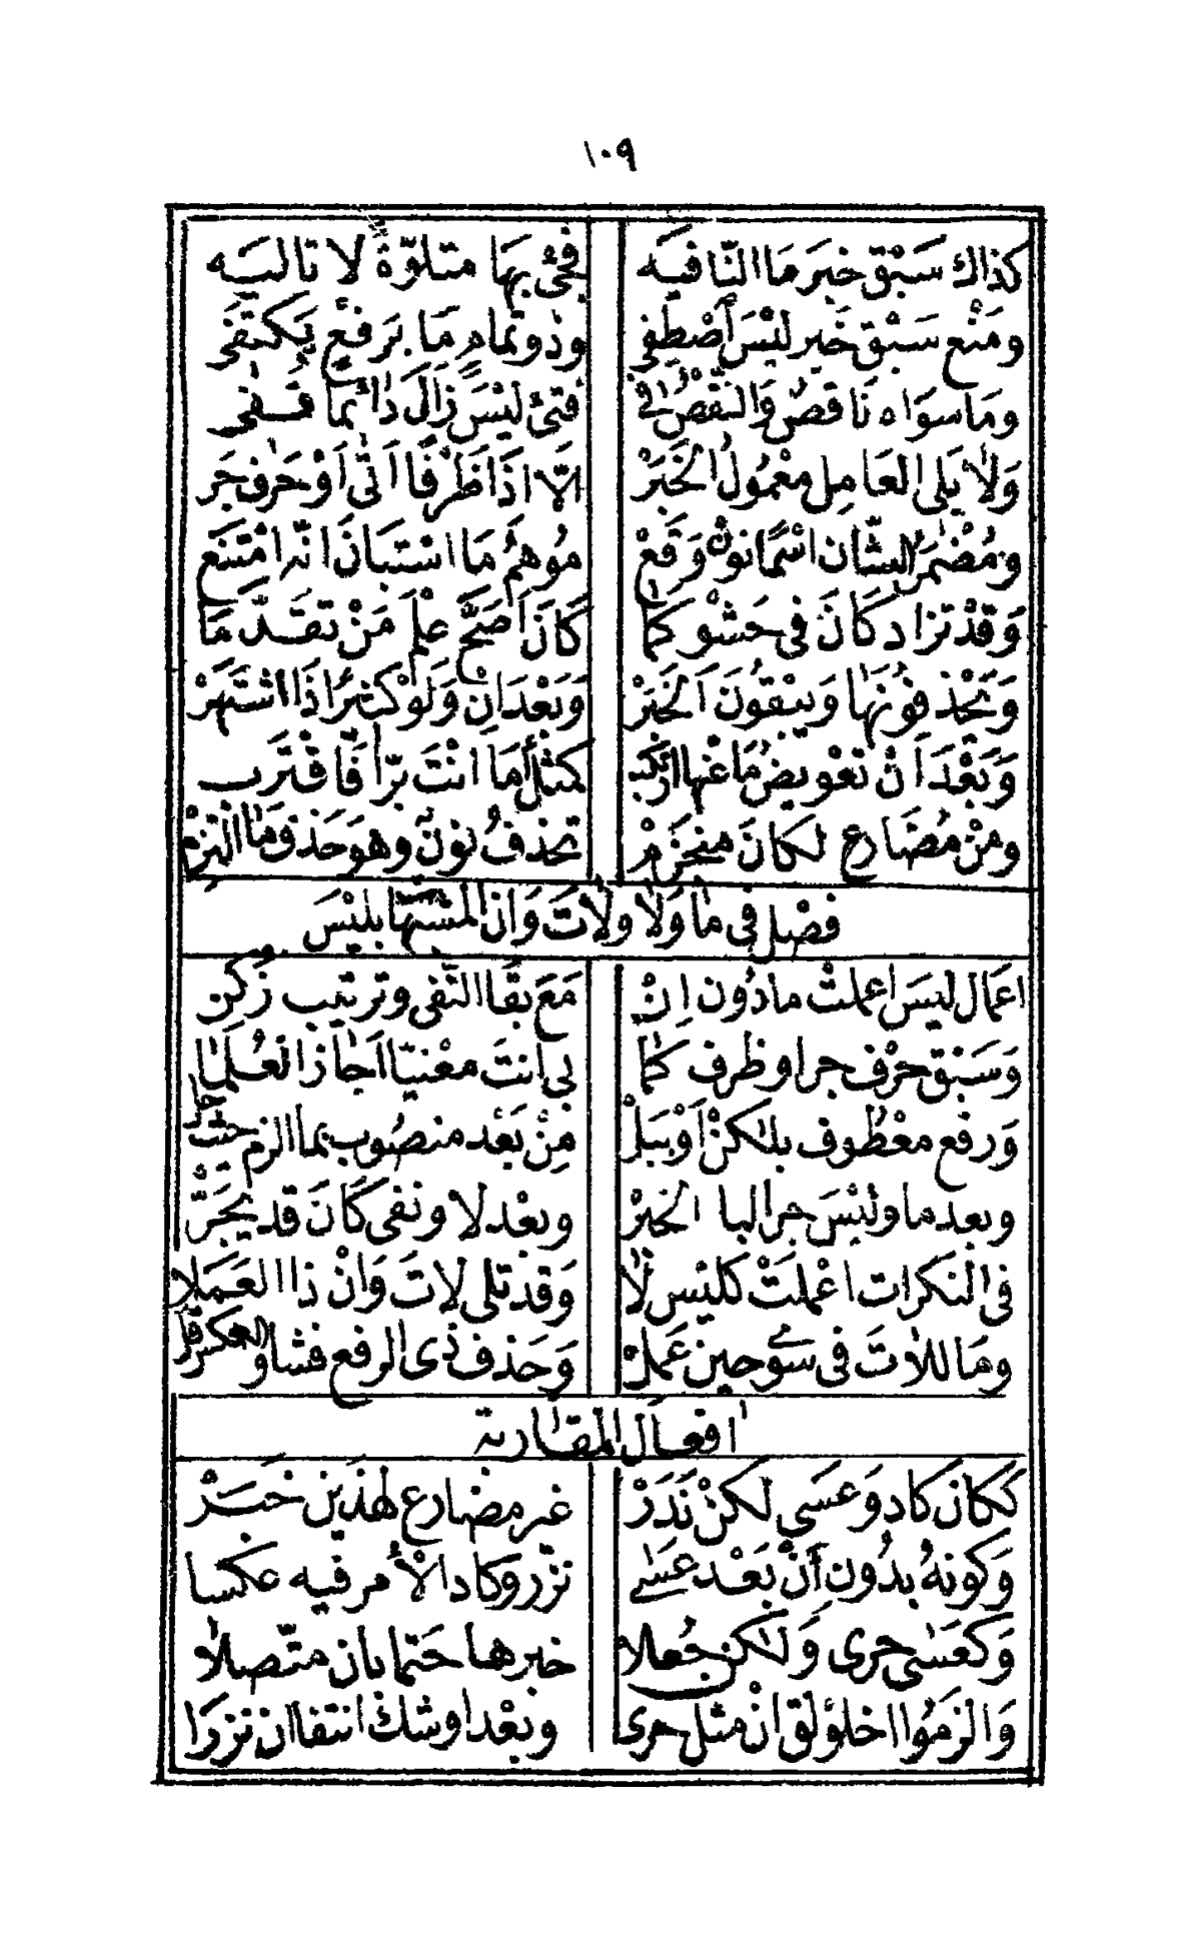 ١٠٩
كذاك سَبْق خبر مَا النّافيه فجئ بِهَا متلوّةً لا تاليَه
ومَنْع سَبْق خَبر ليْسَ اصْطفى وذو تمامٍ مَا بِرَفعٍ يَكتفى
ومَا سوَاه نَاقصٌ وَالنقْصُ فى فتئ ليْسَ زَالَ دَائمًا قفى
وَلا يَلى العَامِل معْمُولُ الخَبَرْ الّا اذَا ظَرْفًا اَتى اَوْ حَرف جَر
ومُضْمَر الشّان اسْمًا انو وَقَعْ مُوهِمُ مَا استبَانَ انّه امْتنَع
وَقدْ تزاد كَانَ فى حَشْو كمَا كَانَ اَصَحَّ عِلْمَ مَنْ تقدّمَا
وَيَحْذفونهَا وَيبْقونَ الخَبَرْ وَبَعْدَ انْ وَلَوْ كثيرًا ذَا اشتَهَرْ
وَبَعْدَ اَنْ تعْويض مَا عَنها ارْتكب كمثل أمَا انْتَ برّا فَاقْترب
ومنْ مُضَارعٍ لكانَ منجزمْ تحذف نونٌ وهوَ حَذف مَا التزمْ
فصْل فى مَا وَلَا ولَاتَ وَان المشبّهَات بليْسَ
اعمَال ليْسَ اعملتْ ما دُون اِنْ مَعَ بقَا النّفى وترتيب زكن
وَسَبْق حرْف جر او ظرف كمَا بى انتَ معْنيّا اَجَاز العُلمَا
وَرفع معْطوف بلكنْ اَوْ ببَلْ منْ بَعْد منصُوب بما الزم حَيْث حَل
وبعد ما وليْسَ جر البا الخبرْ وبعْد لا ونفى كَانَ قد يُجَرّ
فى النكرات اعْملَتْ كليْس لَا وَقدْ تلى لاتَ وَانْ ذا العَمَلا
ومَا للاتَ فى سِوے حين عَملْ وَحَذف ذى الرفع فشا والعكس قل
افعَال المقَاربة
ككانَ كاد وَعسَى لكنْ نَدَرْ غير مضارع لهذين خبَرْ
وَكونهُ بدُون أنْ بَعْد عسَے نزر وكاد الأمر فيه عكسا
وَكعَسَى حرى وَلكن جُعلا خبرها حَتما بان متّصلا
وَالزمُوا اخلوْلق انْ مثل حرى وبعْد اوشك انتفا ان نزرَا